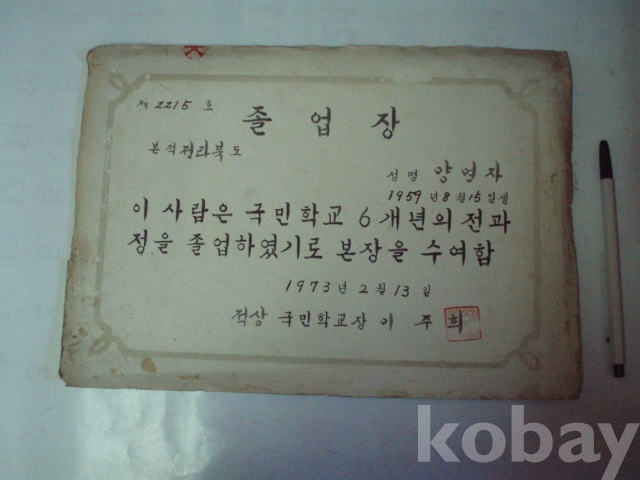 제 2215 호
졸업장
본적 전라북도
성명 양영자
1959년 8월 15일생
이 사람은 국민학교 6개년의 전과
정을 졸업하였기로 본장을 수여함
1973년 2월 13일
적상 국민학교장 이주희
kobay